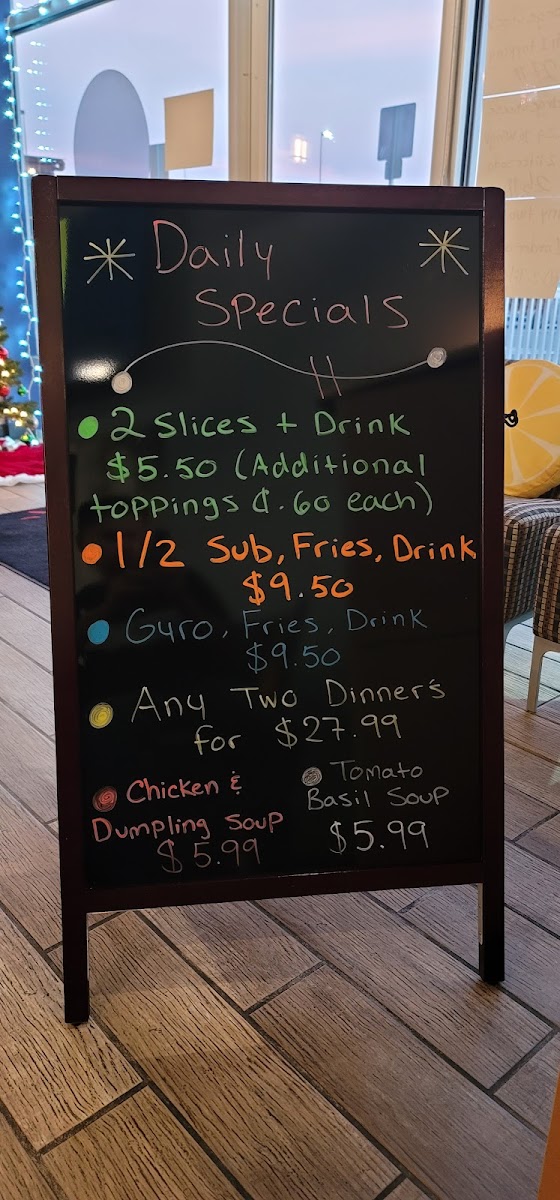 Daily
Specials
2 Slices + Drink
$5.50 (Additional
toppings ¢.60 each)
1/2 Sub, Fries, Drink
$9.50
Gyro, Fries, Drink
$9.50
Any Two Dinner's
for $27.99
Chicken &
Dumpling Soup
$5.99
Tomato
Basil Soup
$5.99